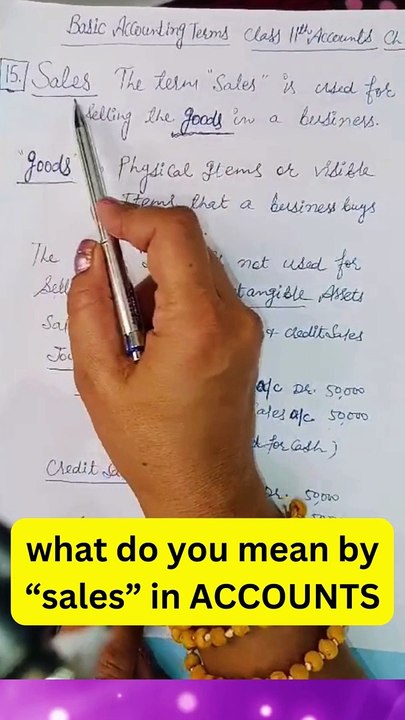 Basic Accounting Terms Class 11th Accounts Ch
15. Sales The term "Sales" is used for
selling the goods in a business.
"goods" Physical Items or visible
Items that a business buys
The not used for
Sell tangible Assets
Sa & Credit Sales
Jou
a/c Dr. 50,000
Sales a/c 50,000
for Cash)
Credit Sa
Dr. 50,000
what do you mean by
“sales” in ACCOUNTS